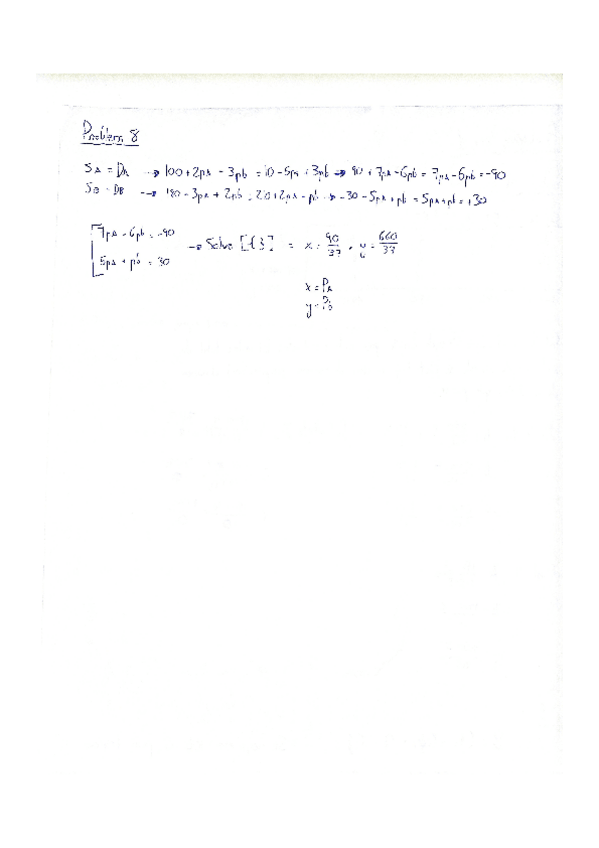 Problem 8
SA = DA → 100 + 2pA - 3pb = 10 - 5pA + 3pb → 90 + 7pA - 6pb = 7pA - 6pb = -90
SB = DB → 180 - 3pA + 2pb = 20 + 2pA - pb → -30 - 5pA + pb = 5pA + pb = +30
7pA - 6pb = -90
→ Solve = x = 90/37 , y = 660/37
5pA + pb = 30
x = PA
y = Pb